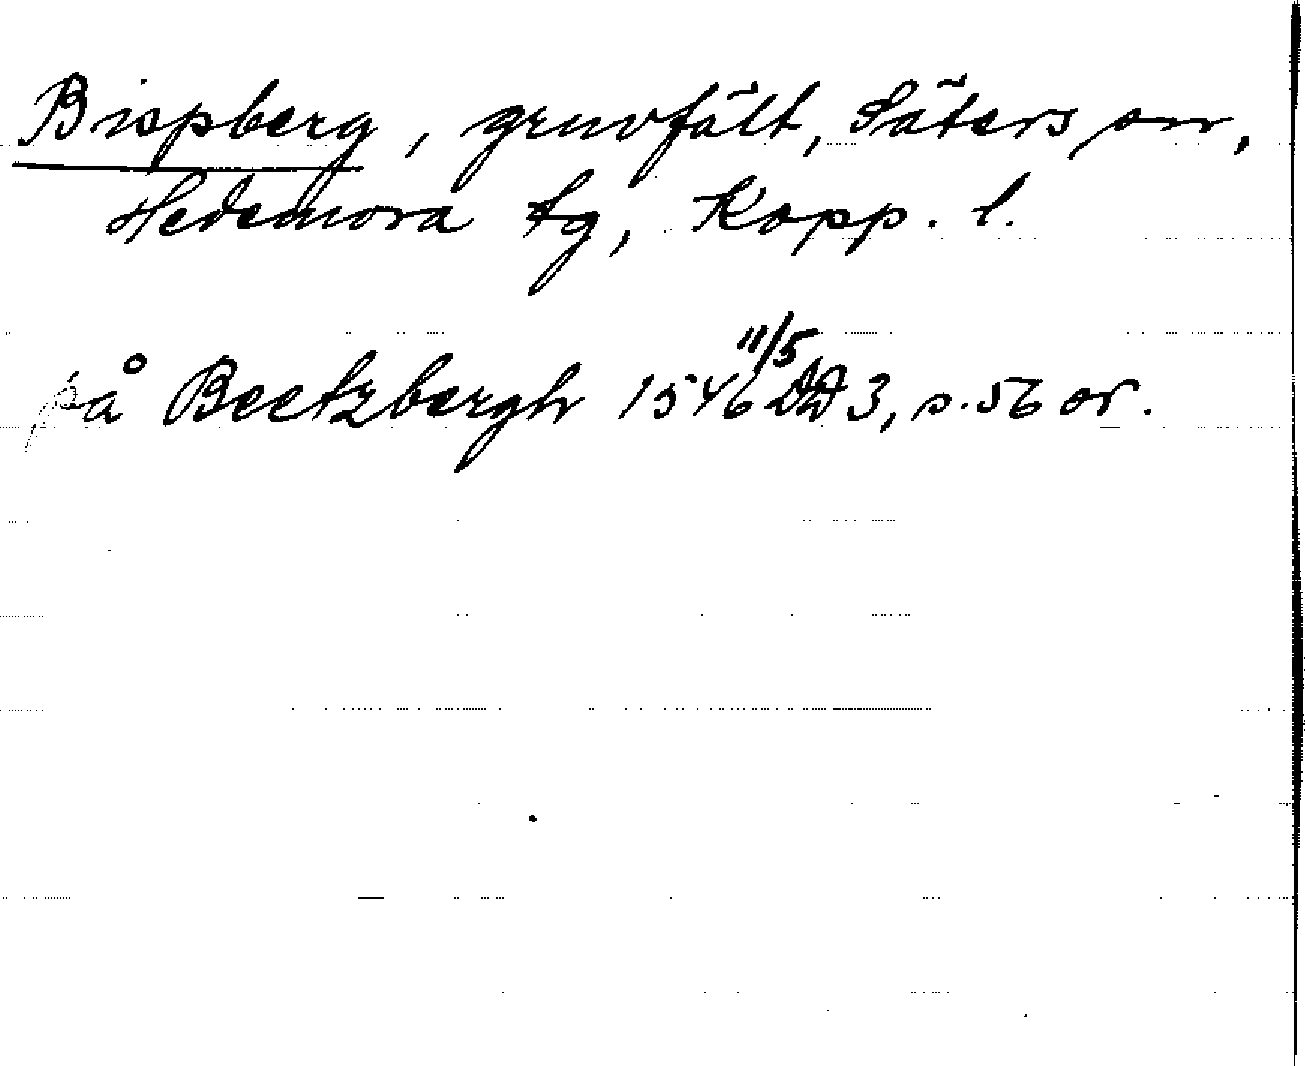 Bispberg, gruvfält, Säters sn,
Hedemora tg, Kopp. l.
på Beetzbergh 1546 11/5 DD 3, s. 56 or.